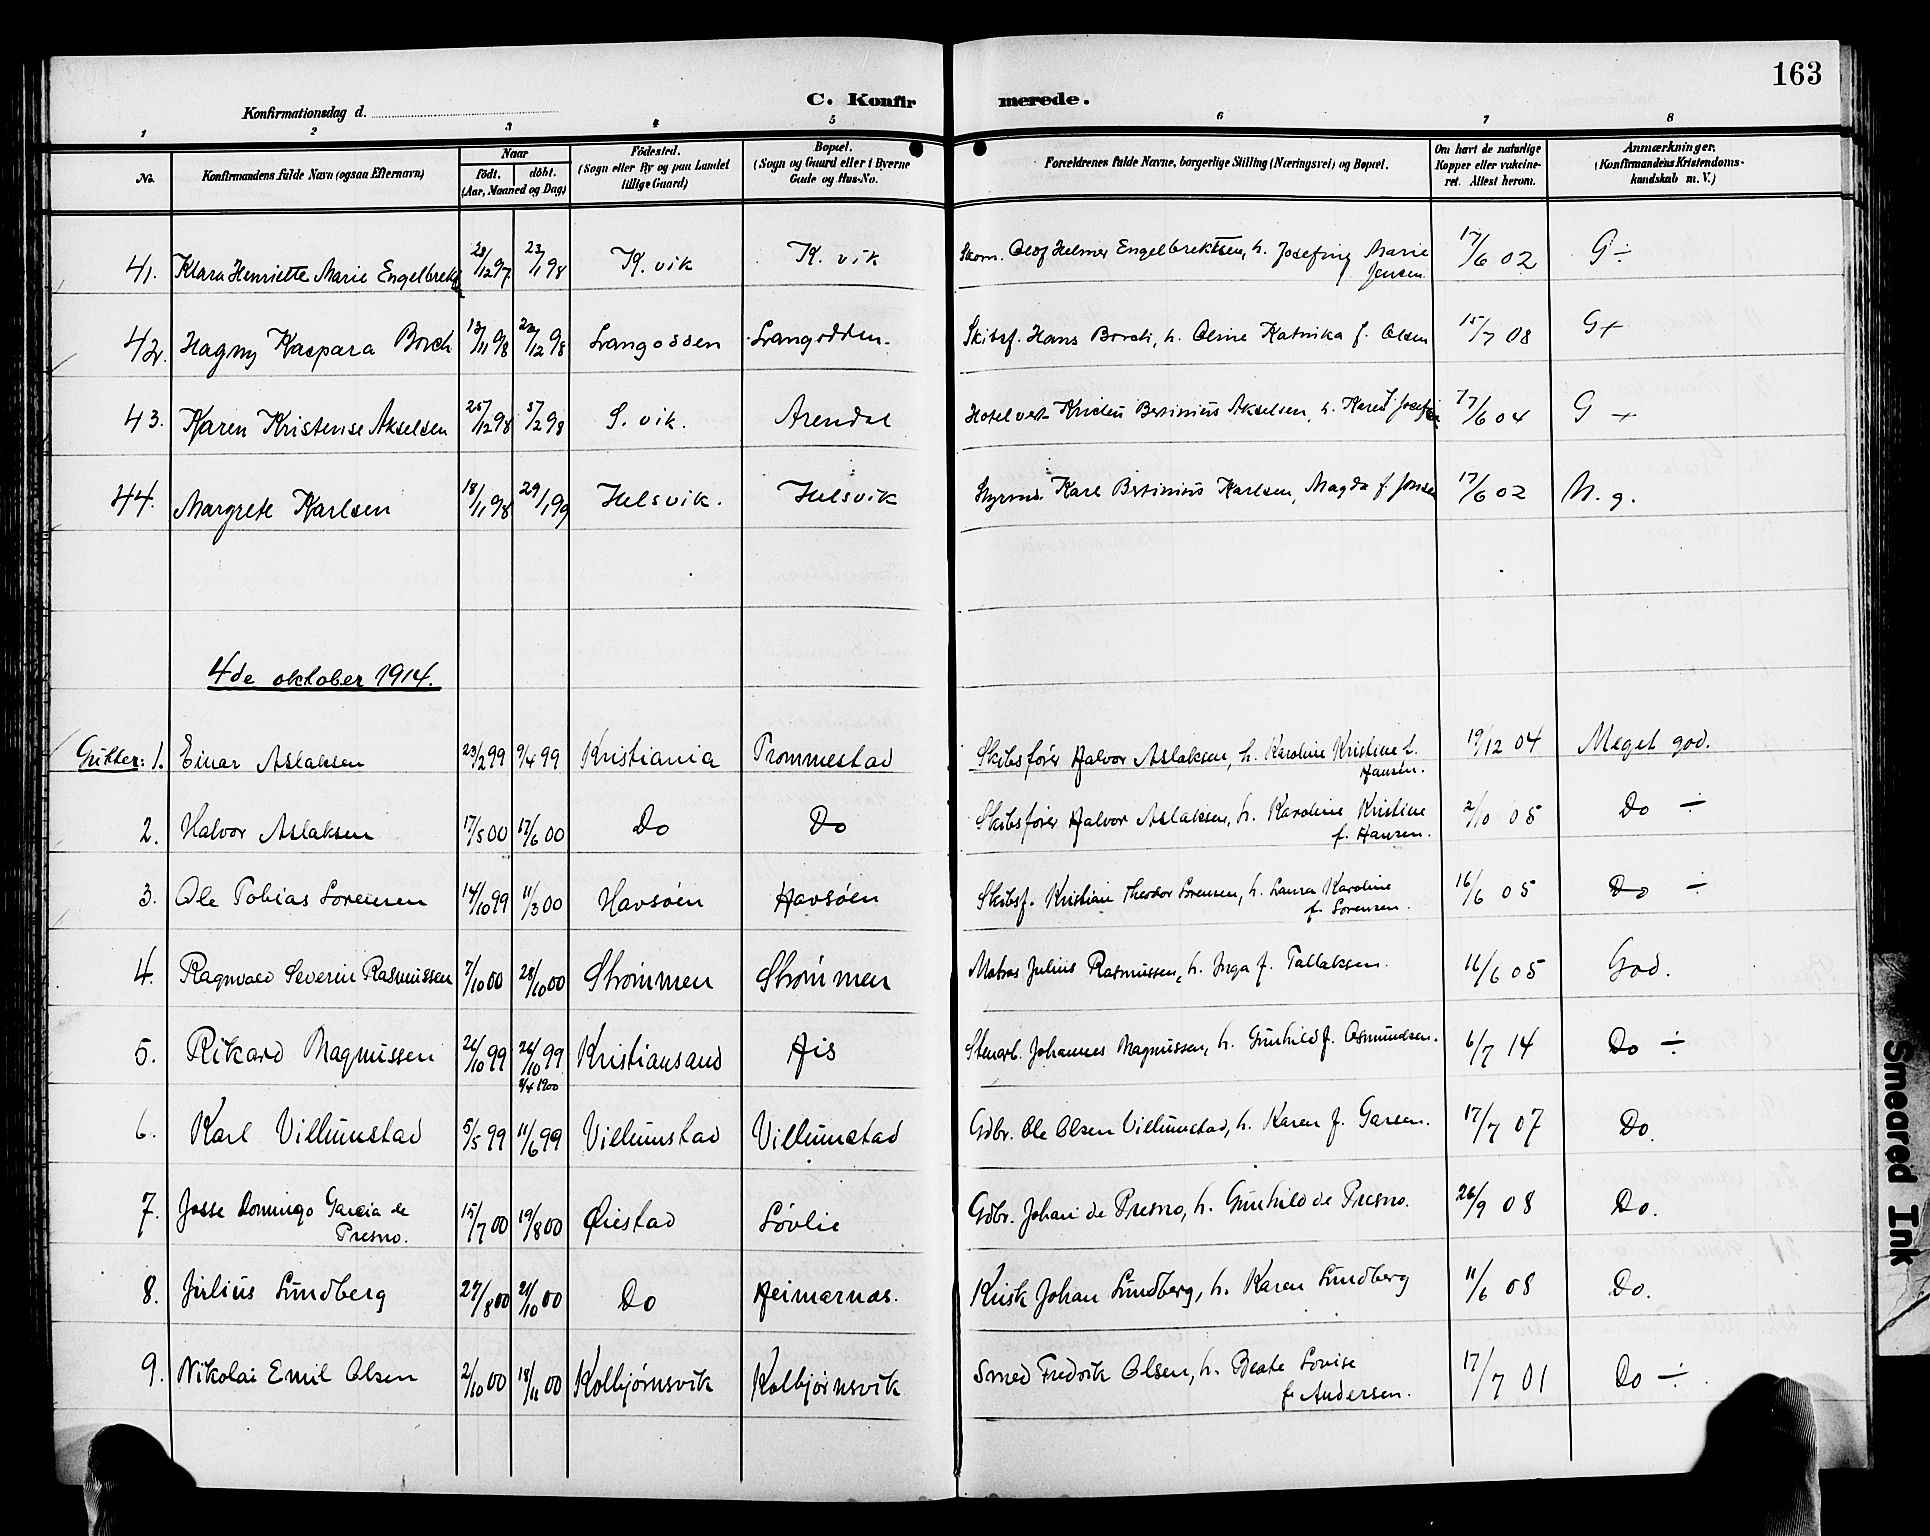 163
C. Konfirmerede.
Konfirmationsdag d.
1 2 3 4 5 6 7 8
No. Konfirmandens fulde Navn (ogsaa Efternavn) Naar födt. döbt. (Aar, Maaned og Dag) Födested. (Sogn eller By og paa Landet tillige Gaard) Bopæl. (Sogn og Gaard eller i Byerne Gade og Hus-No. Forældrenes fulde Navne, borgerlige Stilling (Næringsvei) og Bopæl. Om havt de naturlige Kopper eller vaksineret. Attest herom. Anmærkninger. (Konfirmandens Kristendomskundskab m. V.)
41. Klara Henriette Marie Engelbrekts 28/12 97 23/1 98 K.vik K. vik Olof Helmer Engelbrektsen, h. Josefing Marie Jensen 17/6 02 G ÷
42. Hagny Kaspara Borch 13/11 98 22/12 98 Langodden Langodden. Skibsf. Hans Borch, h. Oline Katrika f. Olsen 15/7 08 G +
43. Karen Kristense Akselsen 25/12 98 5/2 98 S. vik. Arendal Hotelvert Bertinius Akselsen, h. Karen Josef 17/6 04 G +
44. Margrete Karlsen 18/1 98 29/1 99 Helsvik. Helsvik Styrmd. Karl Bertinius Karlsen, Magda f. Jensen 17/6 02 M. g.
4de oktober 1914.
Gutter: 1. Einar Aslaksen 23/2 99 9/4 99 Kristiania Trommestad Skibsfører Halvor Aslaksen, h. Karoline Kristine f. Hansen. 19/12 04 Meget god.
2. Halvor Aslaksen 17/5 00 17/6 00 Do Do Skibsfører Halvor Aslaksen, h. Karoline Kristine f. Hansen. 2/10 05 Do ÷
3. Ole Tobias Sorensen 14/10 99 11/3 00 Havsøen Havsøen Skibsf. Kristian Theodor Sorensen, h. Laura Karoline f. Sorensen. 16/6 05 Do ÷
4. Ragnvald Severin Rasmussen 7/10 00 28/10 00 Strømmen Strømmen Matros Julius Rasmussen, h. Inga f. Tallaksen. 16/6 05 God.
5. Rikard Magnussen 26/10 99 26/10 99 8/4 1900 Kristiansand His Stenarb. Johannes Magnussen, h. Gunhild f. Osmundsen. 6/7 14 Do ÷
6. Karl Villumstad 5/5 99 11/6 99 Villumstad Villumstad Gdbr. Ole Olsen Villumstad, h. Karen f. Garsen. 17/7 07 Do.
7. Josse Domingo Garcia de Presno. 15/7 00 19/8 00 Øiestad Løvlie Gdbr. Johan de Presno, h. Gunhild de Presno. 26/9 08 Do.
8. Julius Lundberg 27/8 00 21/10 00 Do Heimarnas. Kusk Johan Lundberg, h. Karen Lundberg 11/6 08 Do.
9. Nikolai Emil Olsen 2/10 00 18/11 00 Kolbjørnsvik Kolbjørnsvik Smed Fredrik Olsen, h. Beate Lovise f. Andersen. 17/7 01 Do ÷
Smeared Ink